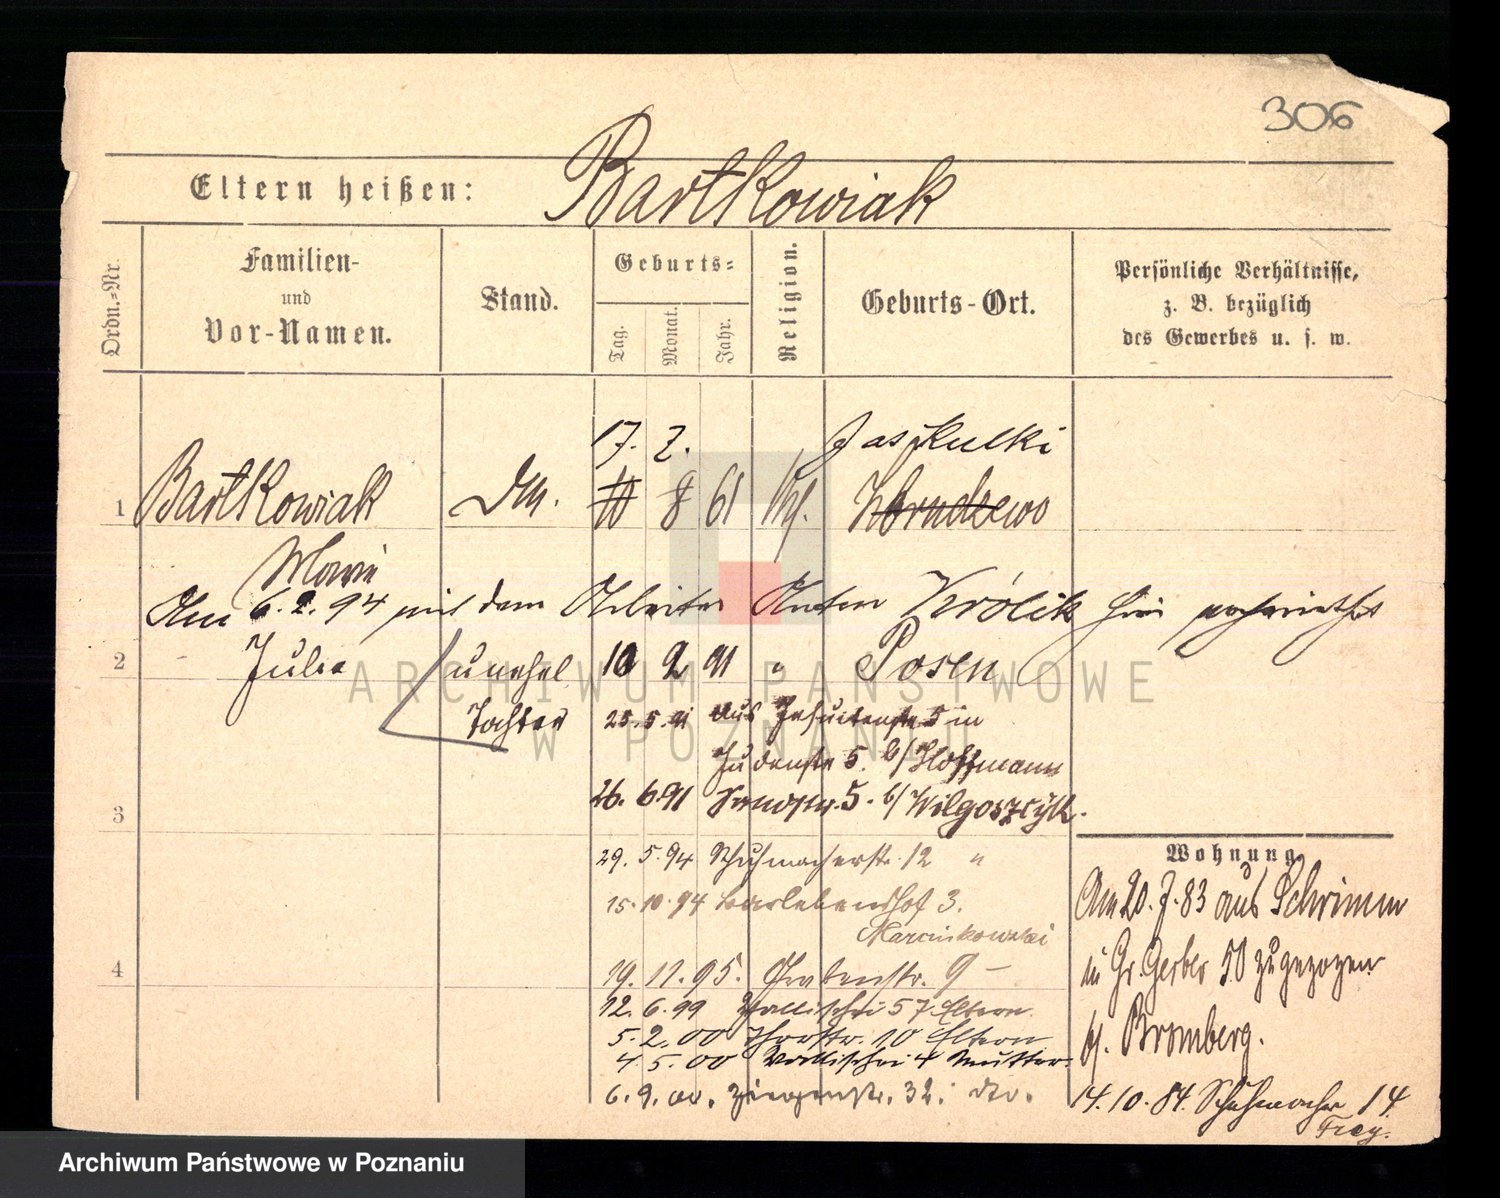 306
Eltern heißen: Bartkowiak
Ordn.=Nr.
Familien-
und
Vor-Namen.
Stand.
Geburts=
Tag.
Monat.
Jahr.
Religion.
Geburts-Ort.
Persönliche Verhältnisse,
z. B. bezüglich
des Gewerbes u. s. w.
17. 2. Jaszkulki
1 Bartkowiak 10 8 61 Kth. Zbrudzewo
Marie
Am 6. 2. 94 mit dem Arbeiter Anton Królik hier verheirathet
2 Julie unehel 10 2 91 " Posen
Tochter 25. 5. 91 aus Jesuitenstr 5 in
Judenstr 5. b/ Hoffmann
3 26. 6. 91 Sandstr. 5. b/ Wilgoszcyk.
Wohnung.
29. 5. 94 Schuhmacherstr. 12 "
Am 20. 7. 83 aus Schrimm
15. 10. 94 Barlebenshof 3.
Marcinkowski
in Gr. Gerber 50 zugezogen
4 19. 11. 95. Grabenstr. 9 –
12. 6. 99 Wallischei 57 Eltern.
b/. Bromberg.
5. 2. 00 Thorstr. 10 Eltern
4. 5. 00 Wallischei 4 Mutter.
6. 9. 00. Ziegenstr. 32. dto.
14. 10. 84. Schuhmacher 14
Frey.
ARCHIWUM PAŃSTWOWE
W POZNANIU
Archiwum Państwowe w Poznaniu